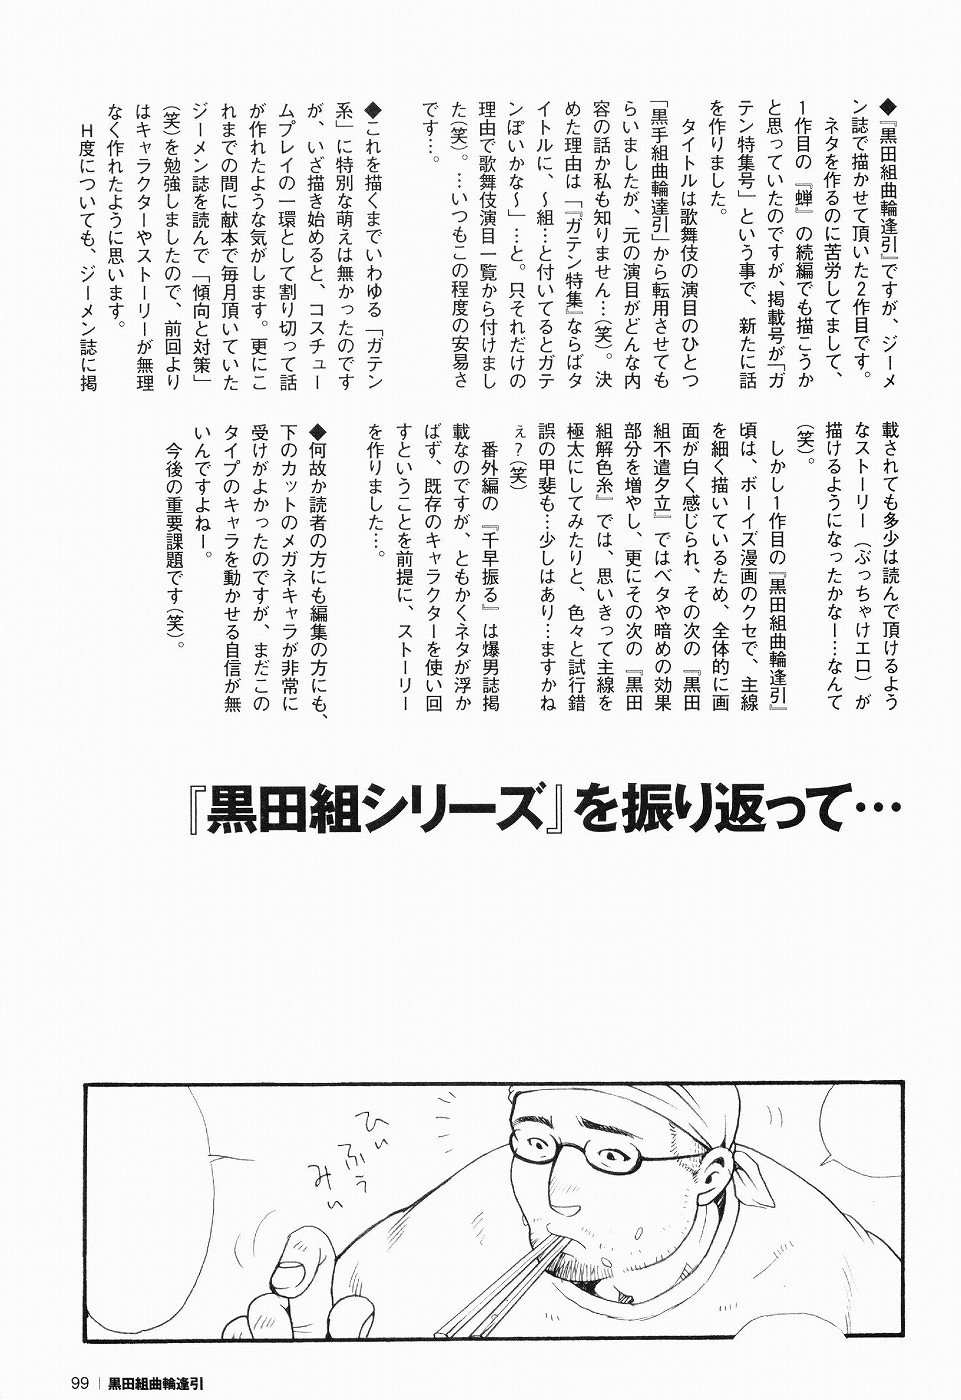 ◆『黒田組曲輪逢引』ですが、ジーメ
ン誌で描かせて頂いた2作目です。
ネタを作るのに苦労してまして、
1作目の『蝉』の続編でも描こうか
と思っていたのですが、掲載号が「ガ
テン特集号」という事で、新たに話
を作りました。
タイトルは歌舞伎の演目のひとつ
「黒手組曲輪達引」から転用させても
らいましたが、元の演目がどんな内
容の話か私も知りません…(笑)。決
めた理由は「『ガテン特集』ならばタ
イトルに、～組…と付いてるとガテ
ンぽいかな～」…と。只それだけの
理由で歌舞伎演目一覧から付けまし
た(笑)。…いつもこの程度の安易さ
です…。
◆これを描くまでいわゆる「ガテン
系」に特別な萌えは無かったのです
が、いざ描き始めると、コスチュー
ムプレイの一環として割り切って話
が作れたような気がします。更にこ
れまでの間に献本で毎月頂いていた
ジーメン誌を読んで「傾向と対策」
(笑)を勉強しましたので、前回より
はキャラクターやストーリーが無理
なく作れたように思います。
H度についても、ジーメン誌に掲
載されても多少は読んで頂けるよう
なストーリー（ぶっちゃけエロ）が
描けるようになったかなー…なんて
(笑)。
しかし1作目の『黒田組曲輪逢引』
頃は、ボーイズ漫画のクセで、主線
を細く描いているため、全体的に画
面が白く感じられ、その次の『黒田
組不遣夕立』ではベタや暗めの効果
部分を増やし、更にその次の『黒田
組解色糸』では、思いきって主線を
極太にしてみたりと、色々と試行錯
誤の甲斐も…少しはあり…ますかね
ぇ？(笑)
番外編の『千早振る』は爆男誌掲
載なのですが、ともかくネタが浮か
ばず、既存のキャラクターを使い回
すということを前提に、ストーリー
を作りました…。
◆何故か読者の方にも編集の方にも、
下のカットのメガネキャラが非常に
受けがよかったのですが、まだこの
タイプのキャラを動かせる自信が無
いんですよねー。
今後の重要課題です(笑)。
『黒田組シリーズ』を振り返って…
ひぃ
ふぅ
みぃ
99 | 黒田組曲輪逢引